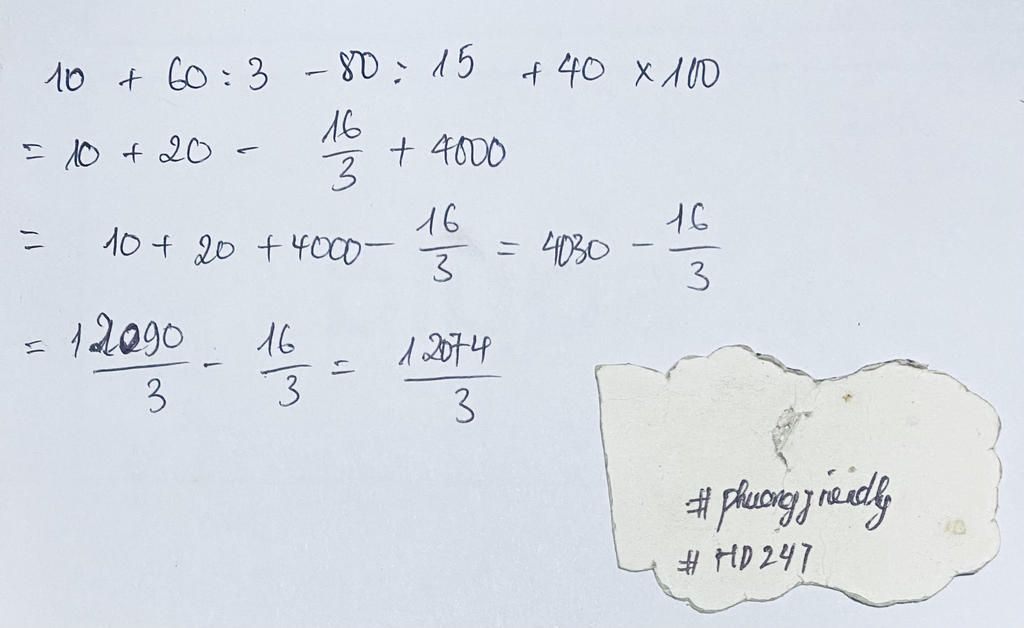 10 + 60 : 3 - 80 : 15 + 40 x 100
= 10 + 20 - 16/3 + 4000
= 10 + 20 + 4000 - 16/3 = 4030 - 16/3
= 12090/3 - 16/3 = 12074/3
#phuongfriendly
#HD247